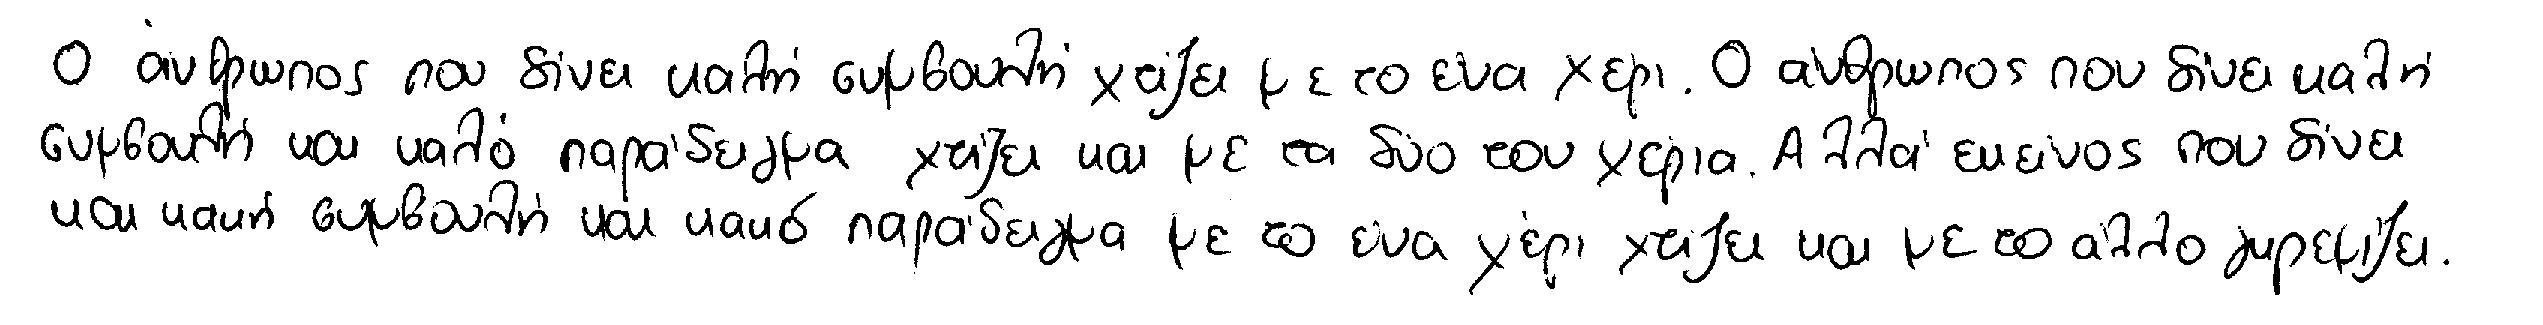 Ο άνθρωπος που δίνει καλή συμβουλή χτίζει με το ένα χέρι. Ο άνθρωπος που δίνει καλή
συμβουλή και καλό παράδειγμα χτίζει και με τα δύο του χέρια. Αλλά εκείνος που δίνει
και κακή συμβουλή και κακό παράδειγμα με το ένα χέρι χτίζει και με το άλλο γκρεμίζει.